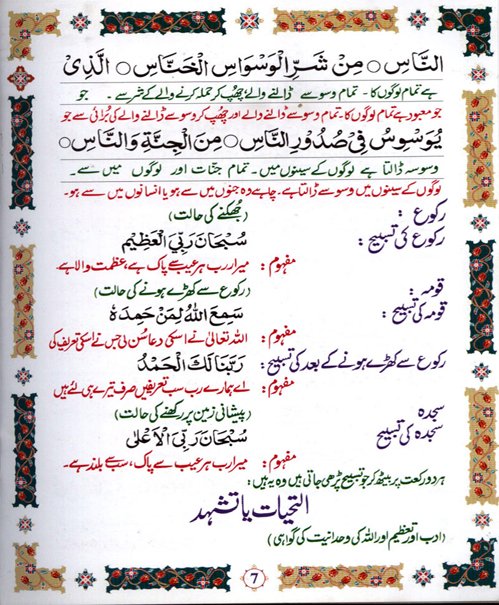 النَّاسِ ○ مِنْ شَرِّ الْوَسْوَاسِ الْخَنَّاسِ ○ الَّذِیْ
ہے تمام لوگوں کا۔ تمام وسوسے ڈالنے والے چھپ کر حملہ کرنے والے کے شر سے۔ جو
جو معبود ہے تمام لوگوں کا۔ تمام وسوسے ڈالنے والے اور چھپ کر وسوسے ڈالنے والے کی بُرائی سے جو
یُوَسْوِسُ فِیْ صُدُوْرِ النَّاسِ ○ مِنَ الْجِنَّةِ وَالنَّاسِ ○
وسوسہ ڈالتا ہے لوگوں کے سینوں میں۔ تمام جنّات اور لوگوں میں سے۔
لوگوں کے سینوں میں وسوسے ڈالتا ہے۔ چاہے وہ جنوں میں سے ہو یا انسانوں میں سے ہو۔
رکوع : (جُھکنے کی حالت)
رکوع کی تسبیح : سُبْحَانَ رَبِّیَ الْعَظِیْمِ
مفہوم : میرا رب ہر عیب سے پاک ہے، عظمت والا ہے۔
قومہ : (رکوع سے کھڑے ہونے کی حالت)
قومہ کی تسبیح : سَمِعَ اللهُ لِمَنْ حَمِدَهٗ
مفہوم : اللہ تعالیٰ نے اسکی دعا سُن لی جس نے اسکی تعریف کی
رکوع سے کھڑے ہونے کے بعد کی تسبیح : رَبَّنَا لَكَ الْحَمْدُ
مفہوم : اے ہمارے رب سب تعریفیں صرف تیرے ہی لئے ہیں
سجدہ (پیشانی زمین پر رکھنے کی حالت)
سجدہ کی تسبیح سُبْحَانَ رَبِّیَ الْاَعْلٰی
مفہوم : میرا رب ہر عیب سے پاک، سب سے بلند ہے۔
ہر دو رکعت پر بیٹھ کر جو تسبیح پڑھی جاتی ہیں وہ یہ ہیں :
التحیات یا تشہد
(ادب اور تعظیم اور اللہ کی وحدانیت کی گواہی)
7